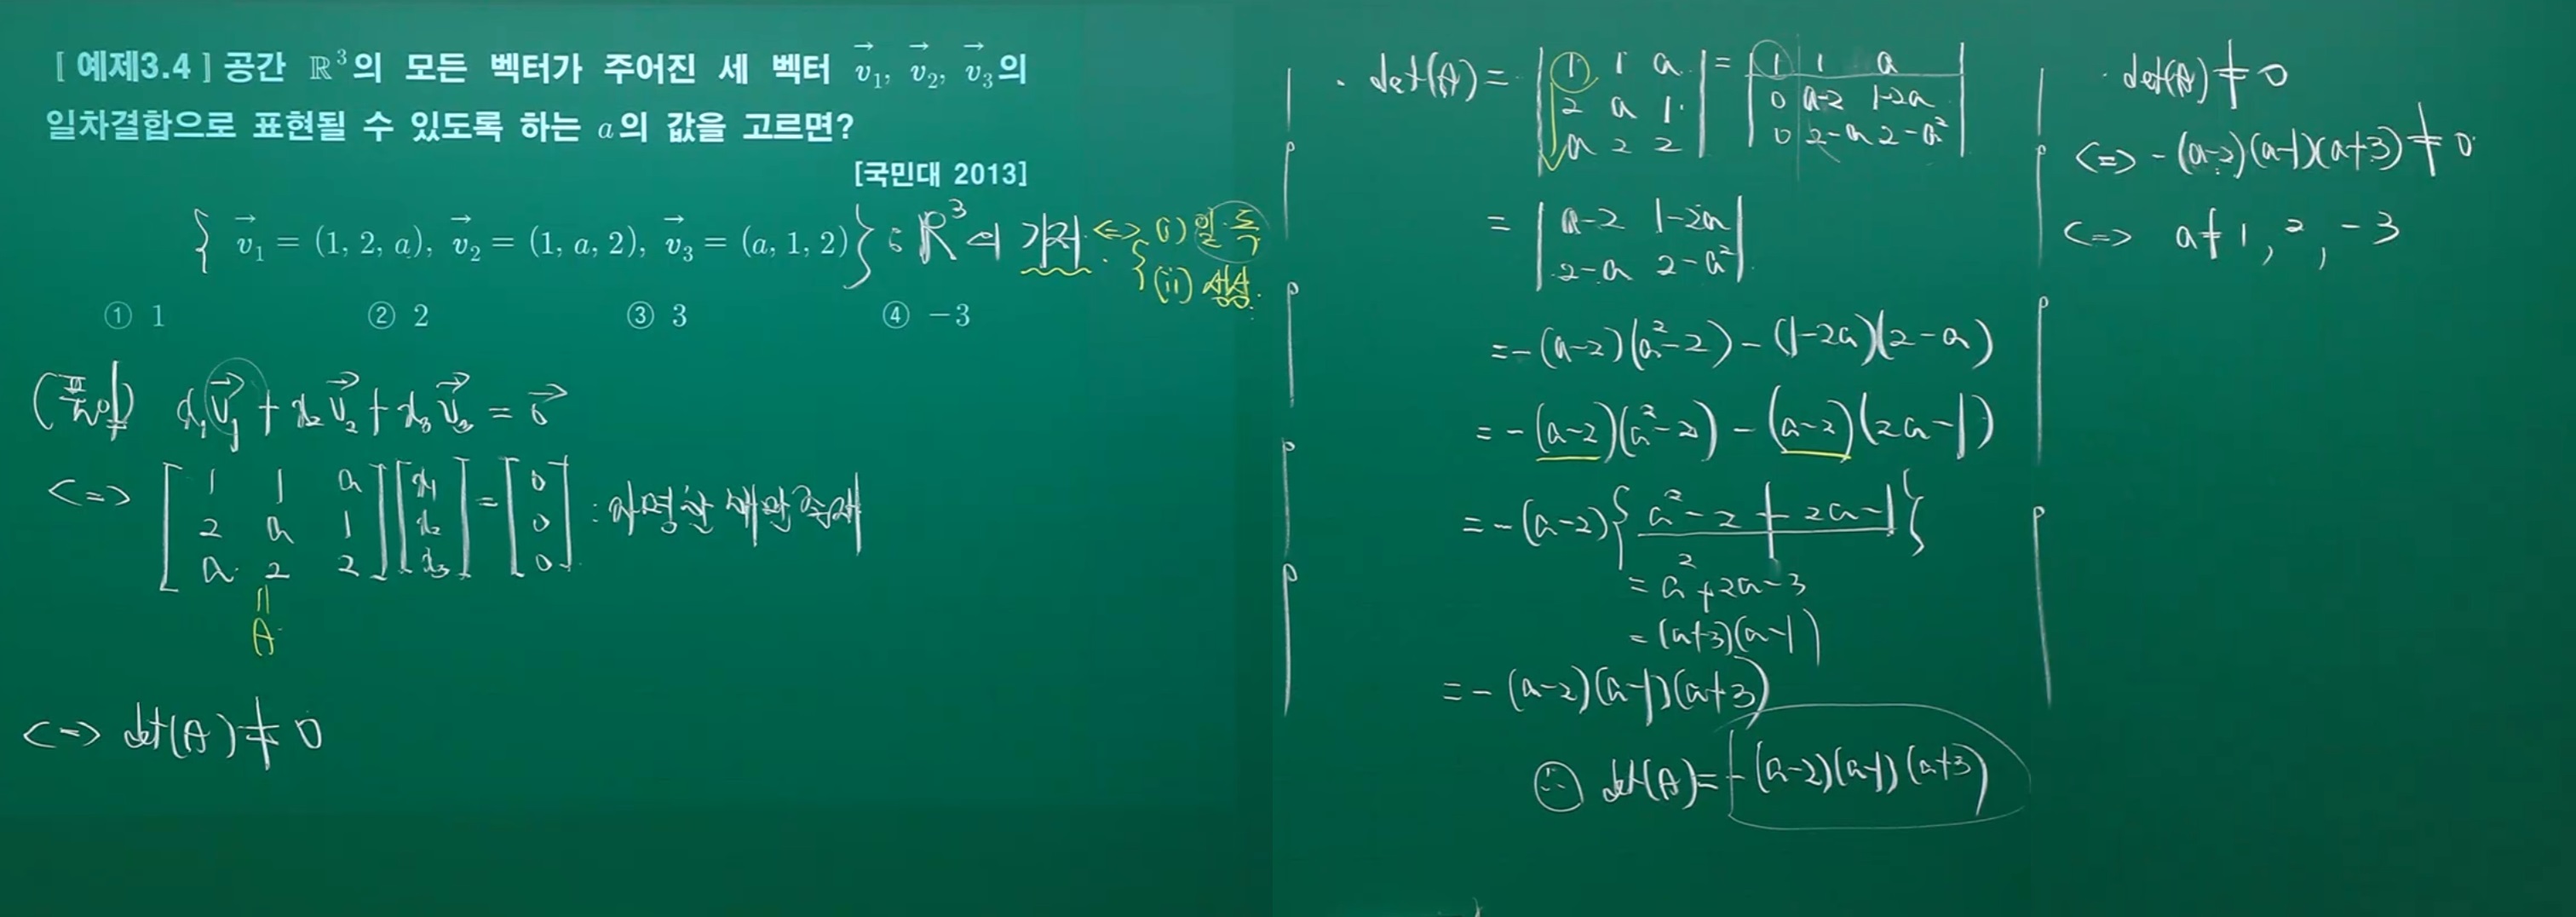 [ 예제3.4 ] 공간 ℝ³의 모든 벡터가 주어진 세 벡터 v⃗₁, v⃗₂, v⃗₃의
일차결합으로 표현될 수 있도록 하는 a의 값을 고르면?
[국민대 2013]
{ v⃗₁ = (1, 2, a), v⃗₂ = (1, a, 2), v⃗₃ = (a, 1, 2) } : ℝ³의 기저 <=> { (i) 일.독
(ii) 생성.
① 1 ② 2 ③ 3 ④ −3
(풀이) x₁v⃗₁ + x₂v⃗₂ + x₃v⃗₃ = 0⃗
<=> [1 1 a; 2 a 1; a 2 2] [x₁; x₂; x₃] = [0; 0; 0] : 자명한 해만 존재
=
A
<=> det(A) ≠ 0
· det(A) = |1 1 a; 2 a 1; a 2 2| = |1 1 a; 0 a-2 1-2a; 0 2-a 2-a²|
= |a-2 1-2a; 2-a 2-a²|
= -(a-2)(a²-2) - (1-2a)(2-a)
= -(a-2)(a²-2) - (a-2)(2a-1)
= -(a-2){a²-2+2a-1}
= a²+2a-3
= (a+3)(a-1)
= -(a-2)(a-1)(a+3)
∴ det(A) = -(a-2)(a-1)(a+3)
· det(A) ≠ 0
<=> -(a-2)(a-1)(a+3) ≠ 0
<=> a ≠ 1, 2, -3